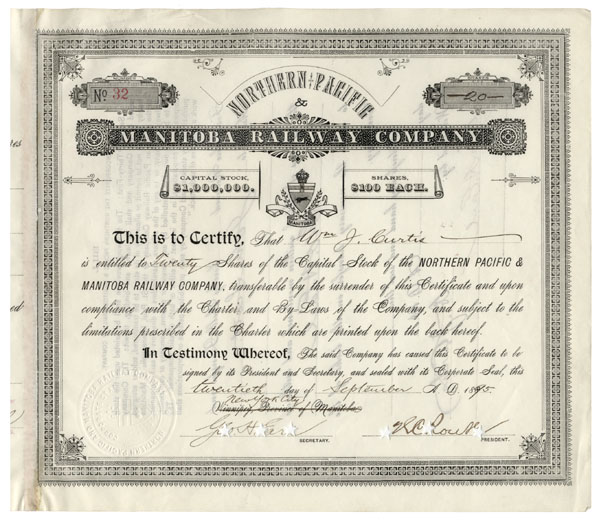 No 32
NORTHERN PACIFIC
-20-
&
MANITOBA RAILWAY COMPANY
CAPITAL STOCK,
$1,000,000.
SHARES,
$100 EACH.
MANITOBA
This is to Certify, That Wm J. Curtis
is entitled to Twenty Shares of the Capital Stock of the NORTHERN PACIFIC &
MANITOBA RAILWAY COMPANY, transferable by the surrender of this Certificate and upon
compliance with the Charter and By-Laws of the Company, and subject to the
limitations prescribed in the Charter which are printed upon the back hereof.
In Testimony Whereof, The said Company has caused this Certificate to be
signed by its President and Secretary, and sealed with its Corporate Seal, this
twentieth day of September A.D. 1895
New York City
Winnipeg, Province of Manitoba
Geo H Earl
SECRETARY.
PRESIDENT.